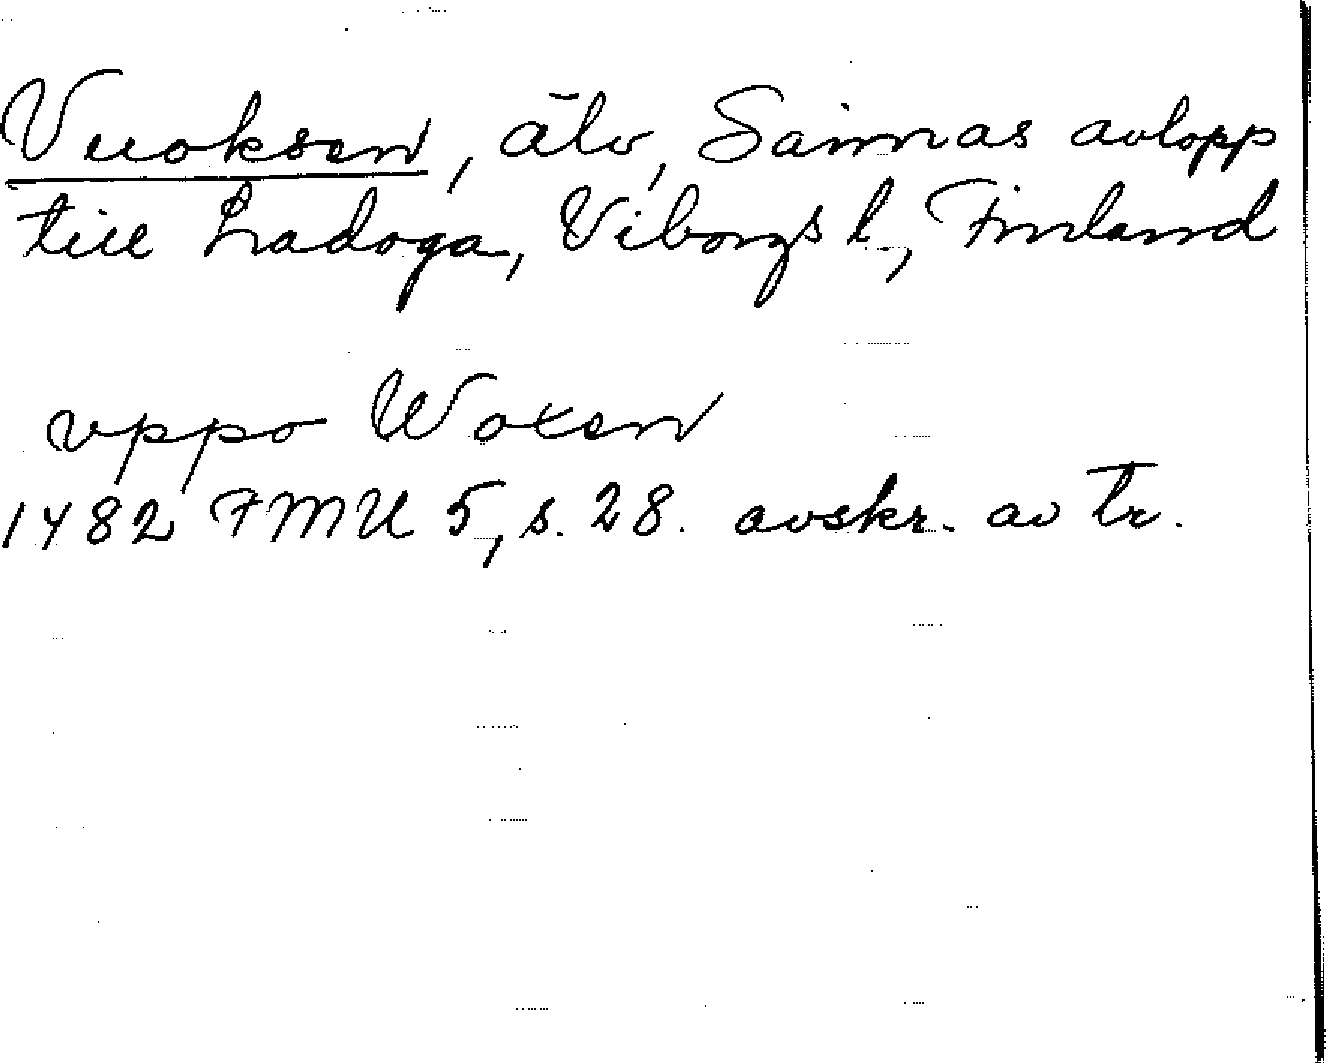 Vuoksen, älv, Saimas avlopp
till Ladoga, Viborgs l., Finland
vppo Woxen
1482 FMU 5, s. 28. avskr. av tr.